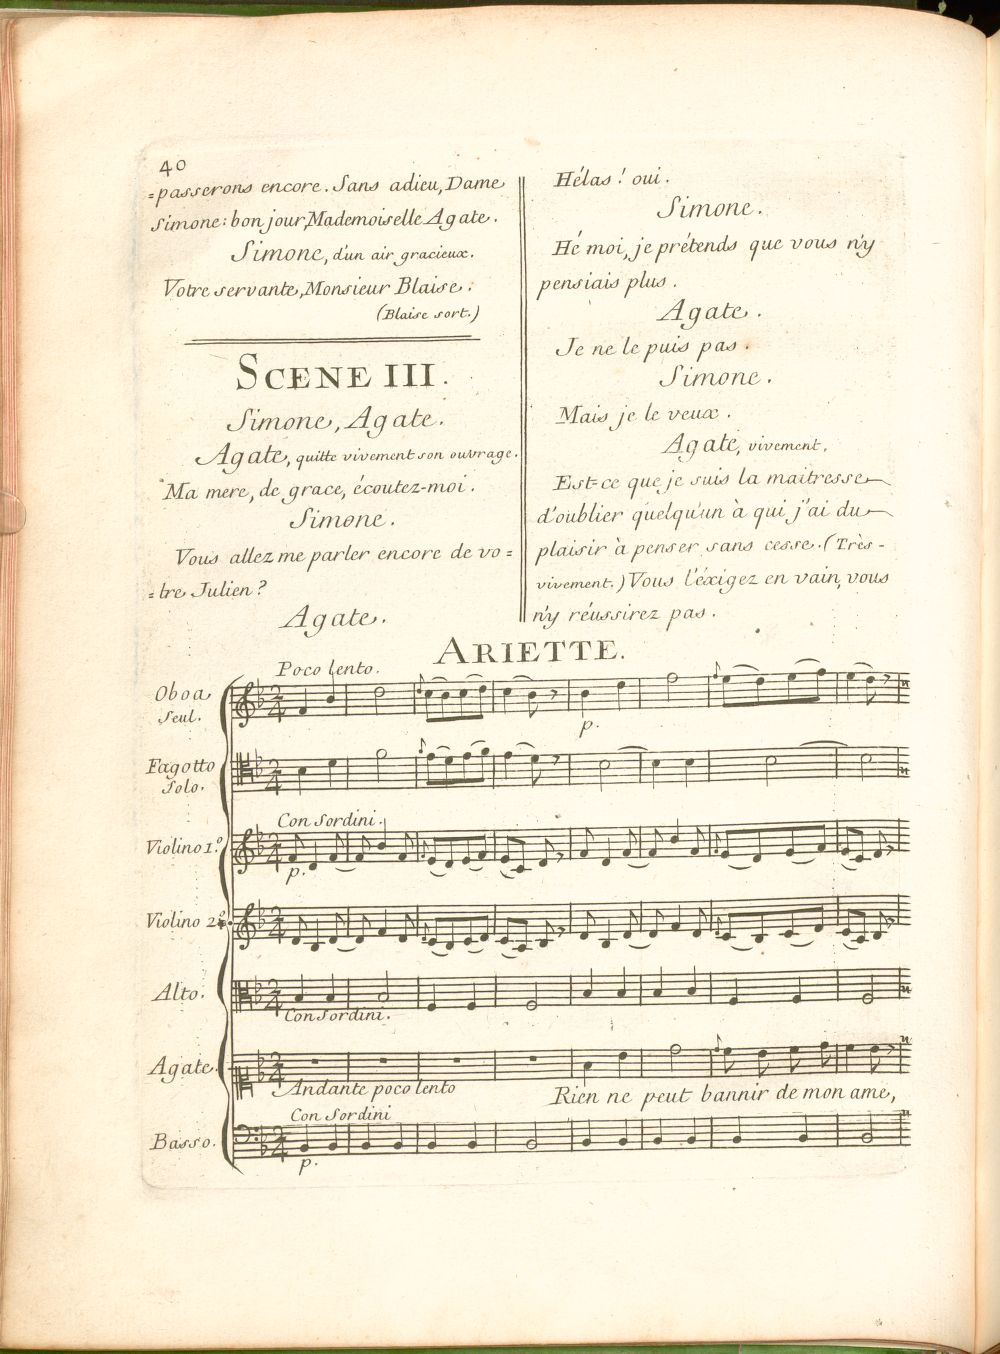 40
=passerons encore. Sans adieu, Dame
Simone: bon jour, Mademoiselle Agate.
Simone, d'un air gracieux.
Votre servante, Monsieur Blaise.
(Blaise sort.)
SCENE III.
Simone, Agate.
Agate, quitte vivement son ouvrage.
Ma mere, de grace, écoutez-moi.
Simone.
Vous allez me parler encore de vo=
=tre Julien?
Agate.
Hélas! oui.
Simone.
Hé moi, je prétends que vous n'y
pensiais plus.
Agate.
Je ne le puis pas.
Simone.
Mais je le veux.
Agate, vivement.
Est=ce que je suis la maitresse
d'oublier quelqu'un à qui j'ai du
plaisir à penser sans cesse. (Très-
vivement.) Vous l'éxigez en vain, vous
n'y réussirez pas.
ARIETTE.
Poco lento.
Oboa
Seul.
p.
Fagotto
Solo.
Con Sordini.
Violino 1º.
p.
Violino 2º.
Alto.
Con Sordini.
Agate.
Andante poco lento
Rien ne peut bannir de mon ame,
Con Sordini
Basso.
p.